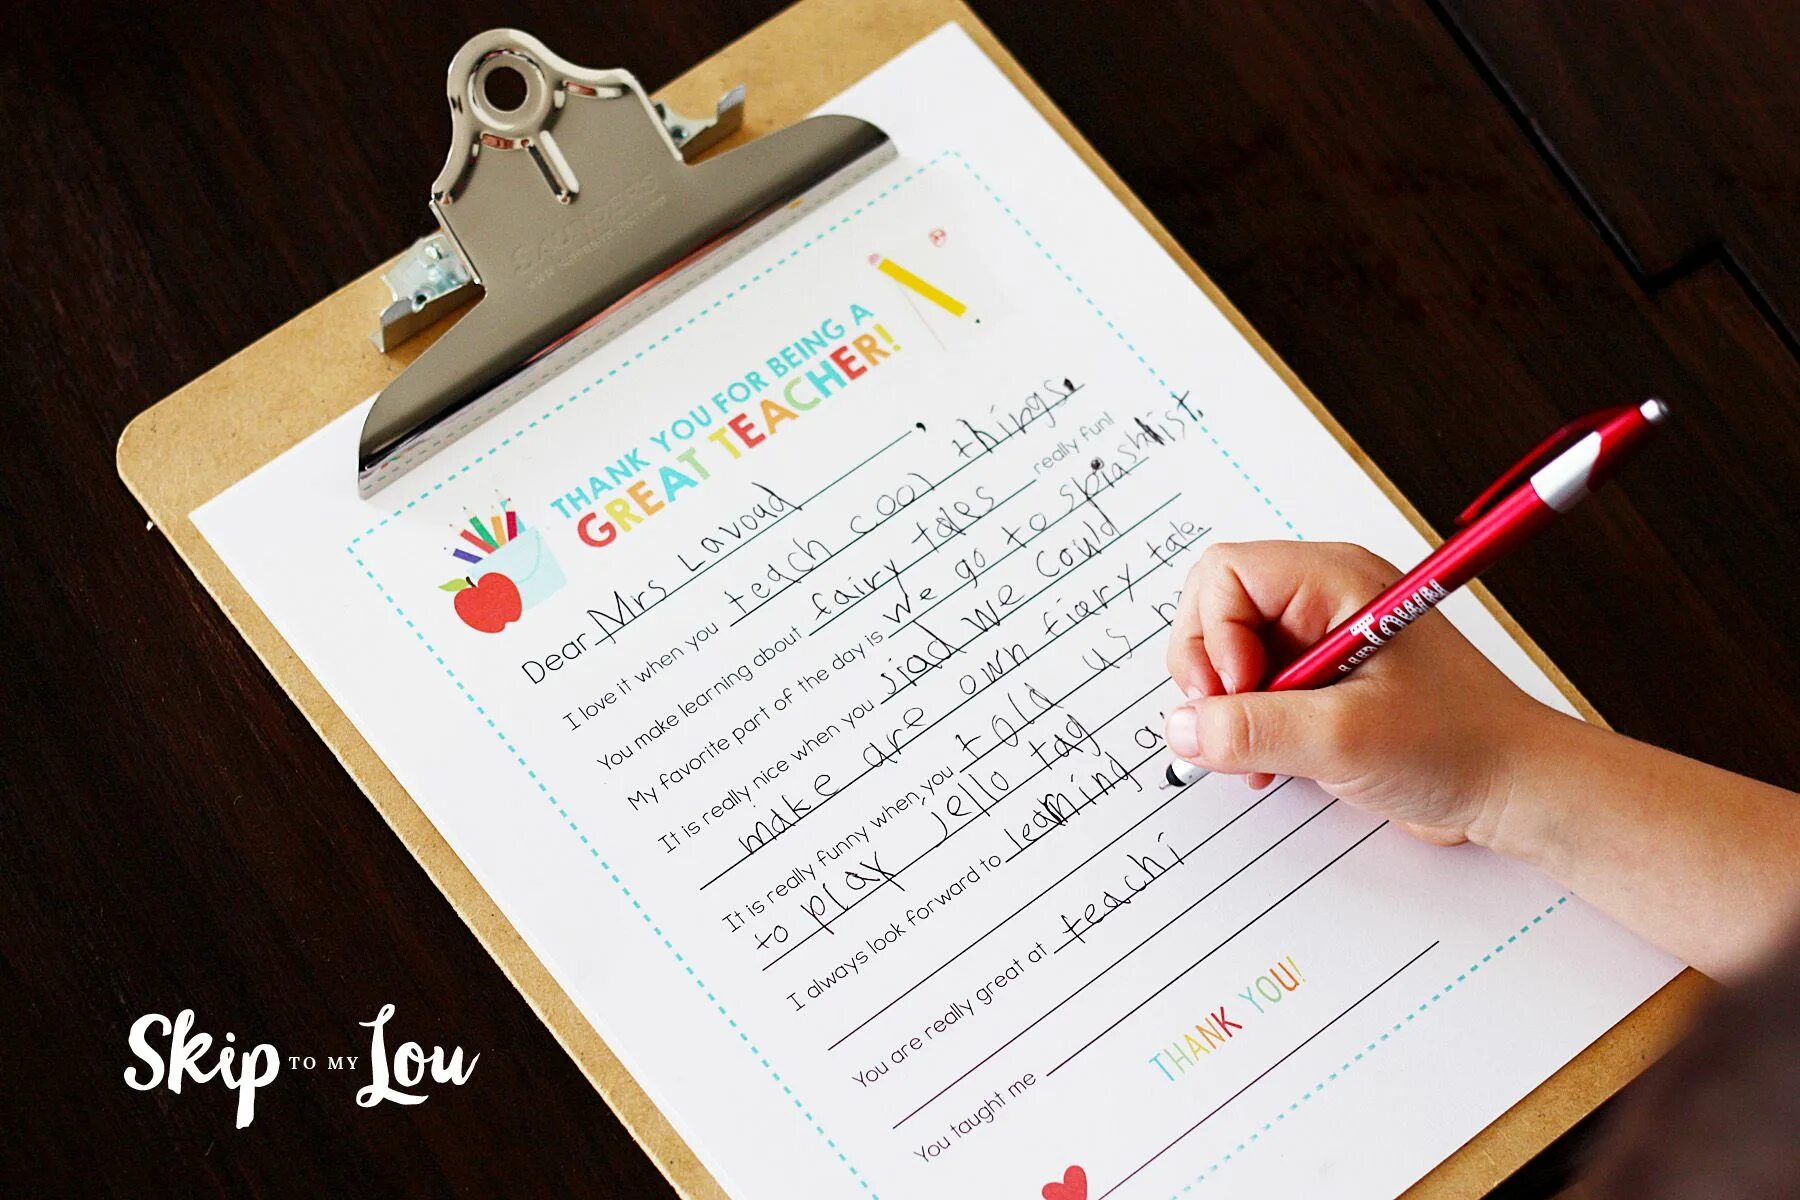 SAUNDERS
THANK YOU FOR BEING A
GREAT TEACHER!
Dear Mrs Lavoad,
I love it when you teach cool things.
You make learning about fairy tales really fun!
My favorite part of the day is we go to splashlist.
It is really nice when you siad we could
make are own fiary tale.
It is really funny when you told us
to play jello tag
I always look forward to learning a
You are really great at teachi
You taught me
THANK YOU!
upTown
Skip TO MY Lou